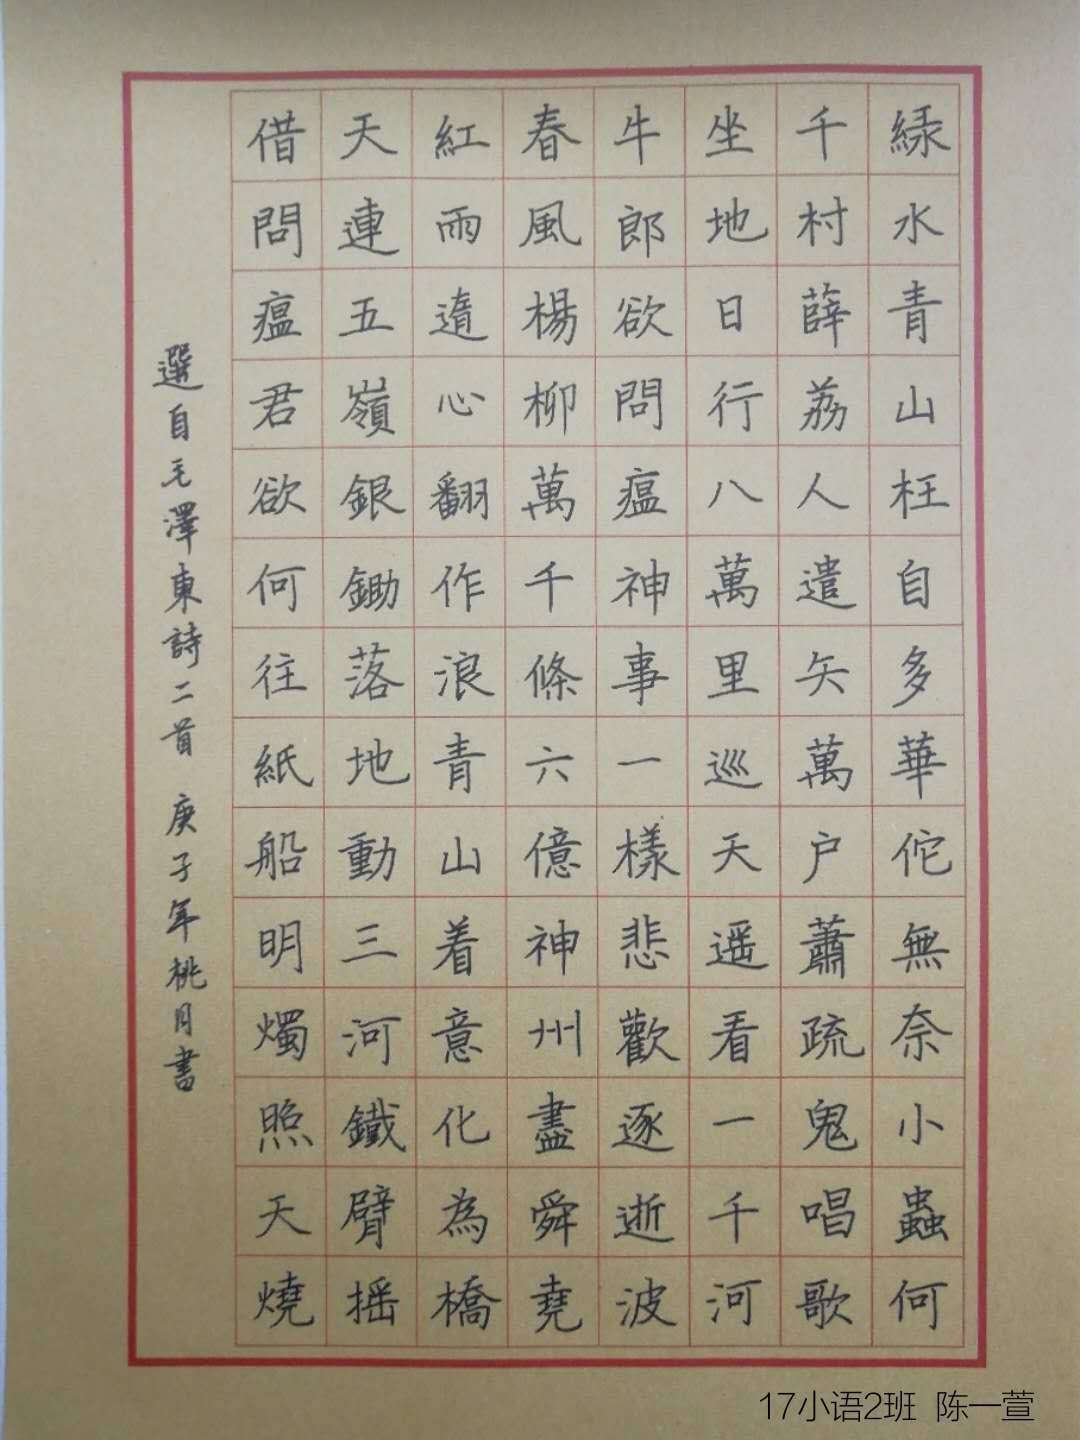 緑水青山枉自多華佗無奈小蟲何
千村薜荔人遣矢萬户蕭疏鬼唱歌
坐地日行八萬里巡天遥看一千河
牛郎欲問瘟神事一樣悲歡逐逝波
春風楊柳萬千條六億神州盡舜堯
紅雨遀心翻作浪青山着意化為橋
天連五嶺銀鋤落地動三河鐵臂摇
借問瘟君欲何往紙船明燭照天燒
選自毛澤東詩二首 庚子年桃月書
17小语2班 陈一萱